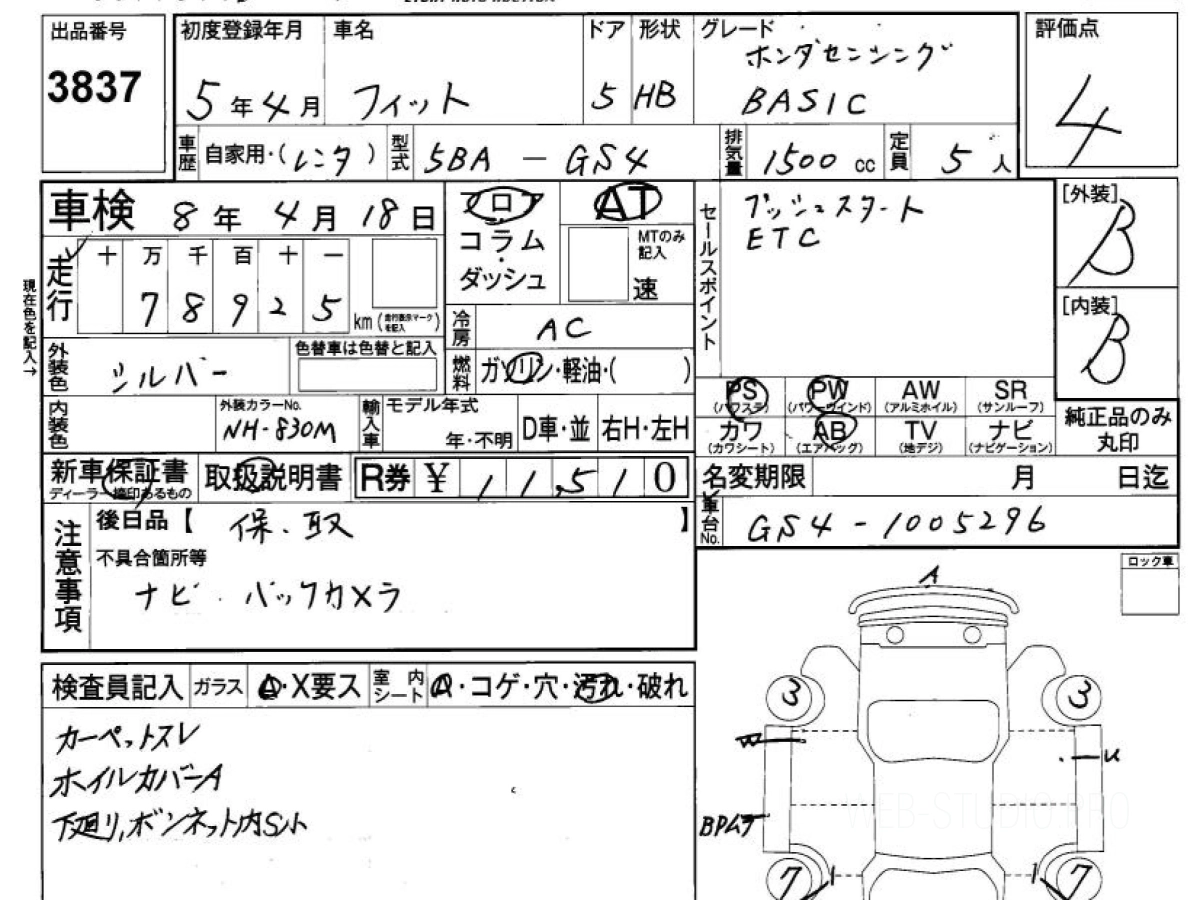 出品番号 初度登録年月 車名 ドア 形状 グレード 評価点
3837 5年4月 フィット 5 HB ホンダセンシング 4
BASIC
車歴 自家用・(レンタ) 型式 5BA - GS4 排気量 1500 cc 定員 5 人
車検 8年4月18日 フロア AT セールスポイント プッシュスタート [外装] B
コラム・ MTのみ記入 ETC
ダッシュ 速
走行 十 万 千 百 十 一
7 8 9 2 5 km (走行表示マークを記入)
現在色を記入→
[内装] B
冷房 AC
外装色 シルバー 色替車は色替と記入
燃料 ガソリン・軽油・( )
PS (パワステ) PW (パワーウインド) AW (アルミホイル) SR (サンルーフ)
カワ (カワシート) AB (エアバック) TV (地デジ) ナビ (ナビゲーション)
純正品のみ丸印
内装色 外装カラーNo. NH-830M 輸入車 モデル年式 年・不明 D車・並 右H・左H
新車保証書 ディーラー捺印あるもの 取扱説明書 R券 ¥ 11,510
名変期限 月 日迄
車台No. GS4-1005296
注意事項 後日品【 保.取 】
不具合箇所等
ナビ バックカメラ
ロック車
検査員記入 ガラス A・X要ス 室内シート A・コゲ・穴・汚れ・破れ
カーペットスレ
ホイルカバーA
下廻り,ボンネット内S小
A
3 3
W U
BPムラ
7 7
WEB-STUDIO.PRO